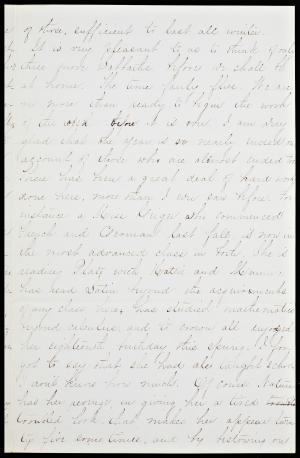 of three, sufficient to last all winter.
It is very pleasant to us to think of only
three more Sabbaths before we shall be
at home. The time fairly flies. We are
no more than ready to begin the work
of the before it is over. I am very
glad that the year is so nearly
account of those who are almost
There has been a great deal of hard work
done here, more than I ever saw before. For
instance a Miss who commenced
French and German last fall, is now in
the most advanced class in both. She is
reading with Katie and Minnie,
has read Latin beyond the acquirements
of any class here, has studied mathematics
beyond calculus, and to crown all enjoyed
her eighteenth birthday this spring. I for-
got to say that she had also taught school
don't know how much. Of course Nature
has her revenge in giving her a tired
troubled look, that makes her appear twen-
ty five some times, and by bestowing on